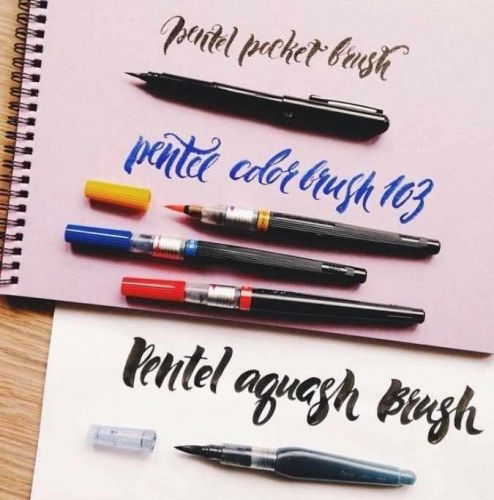 pentel pocket brush
pentel color brush 103
Pentel aquash Brush